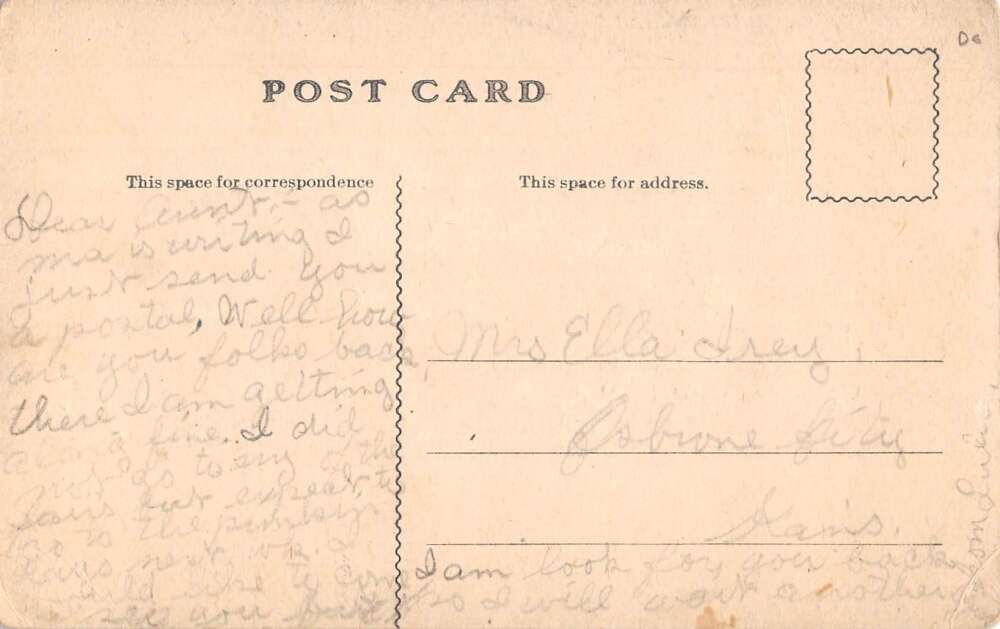 D6
POST CARD
This space for correspondence
This space for address.
Dear Aunt, - as
ma is writing I
just send you
a postal, Well how
are you folks back
there I am getting
along fine. I did
not go to any of the
fairs but expect to
go to the
fairs next wk. I
would like to come
see you but
Mrs Ella Irey,
Osbrone City
Kans.
I am look for you back
so I will want another